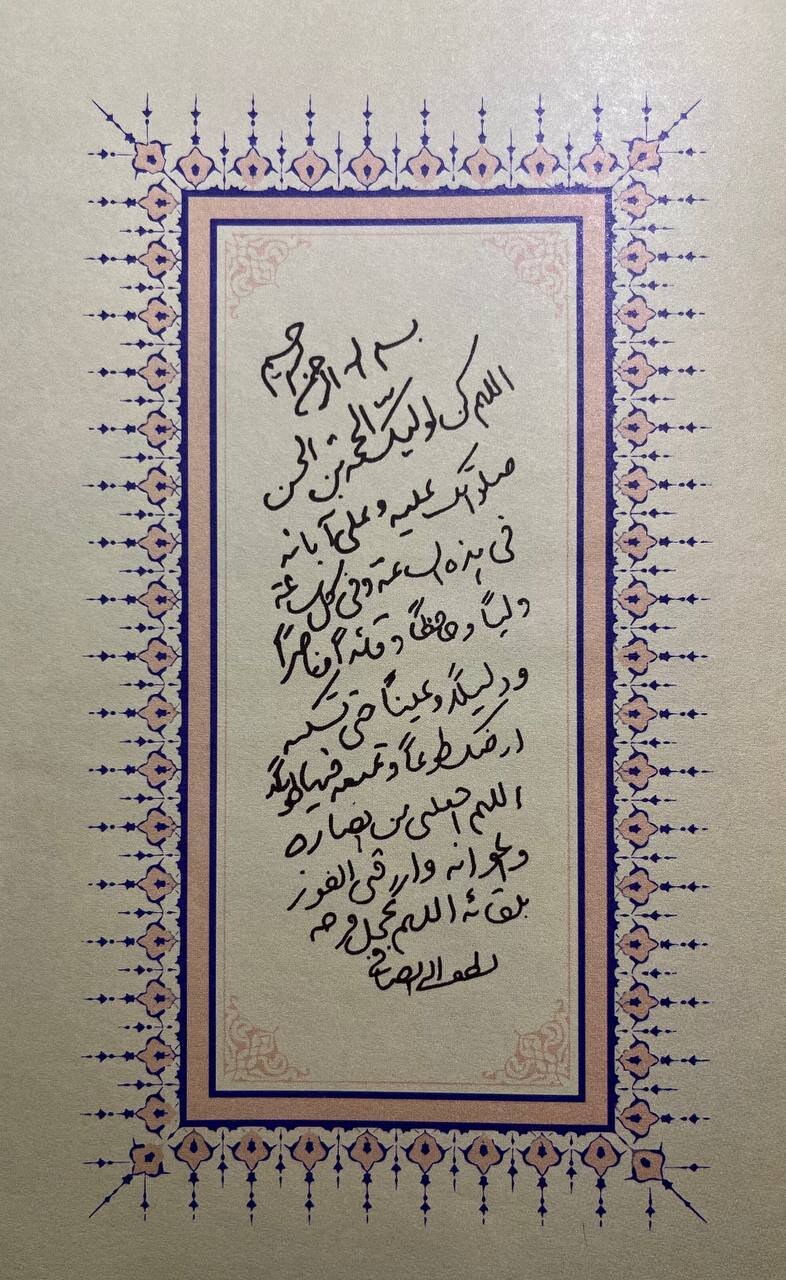 بسم الله الرحمن الرحیم
اللهم کن لولیک الحجة بن الحسن
صلواتک علیه و علی آبائه
فی هذه الساعة و فی کل ساعة
ولیاً و حافظاً و قائداً و ناصراً
و دلیلاً و عیناً حتی تسکنه
ارضک طوعاً و تمتعه فیها طویلاً
اللهم اجعلنی من انصاره
و اعوانه وارزقنی الفوز
بلقائه اللهم عجل فرجه
لطف الله الصافی